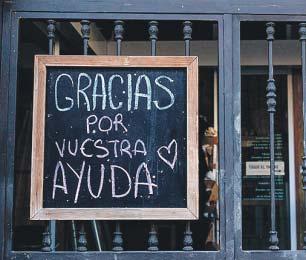 GRACIAS
POR
VUESTRA
AYUDA